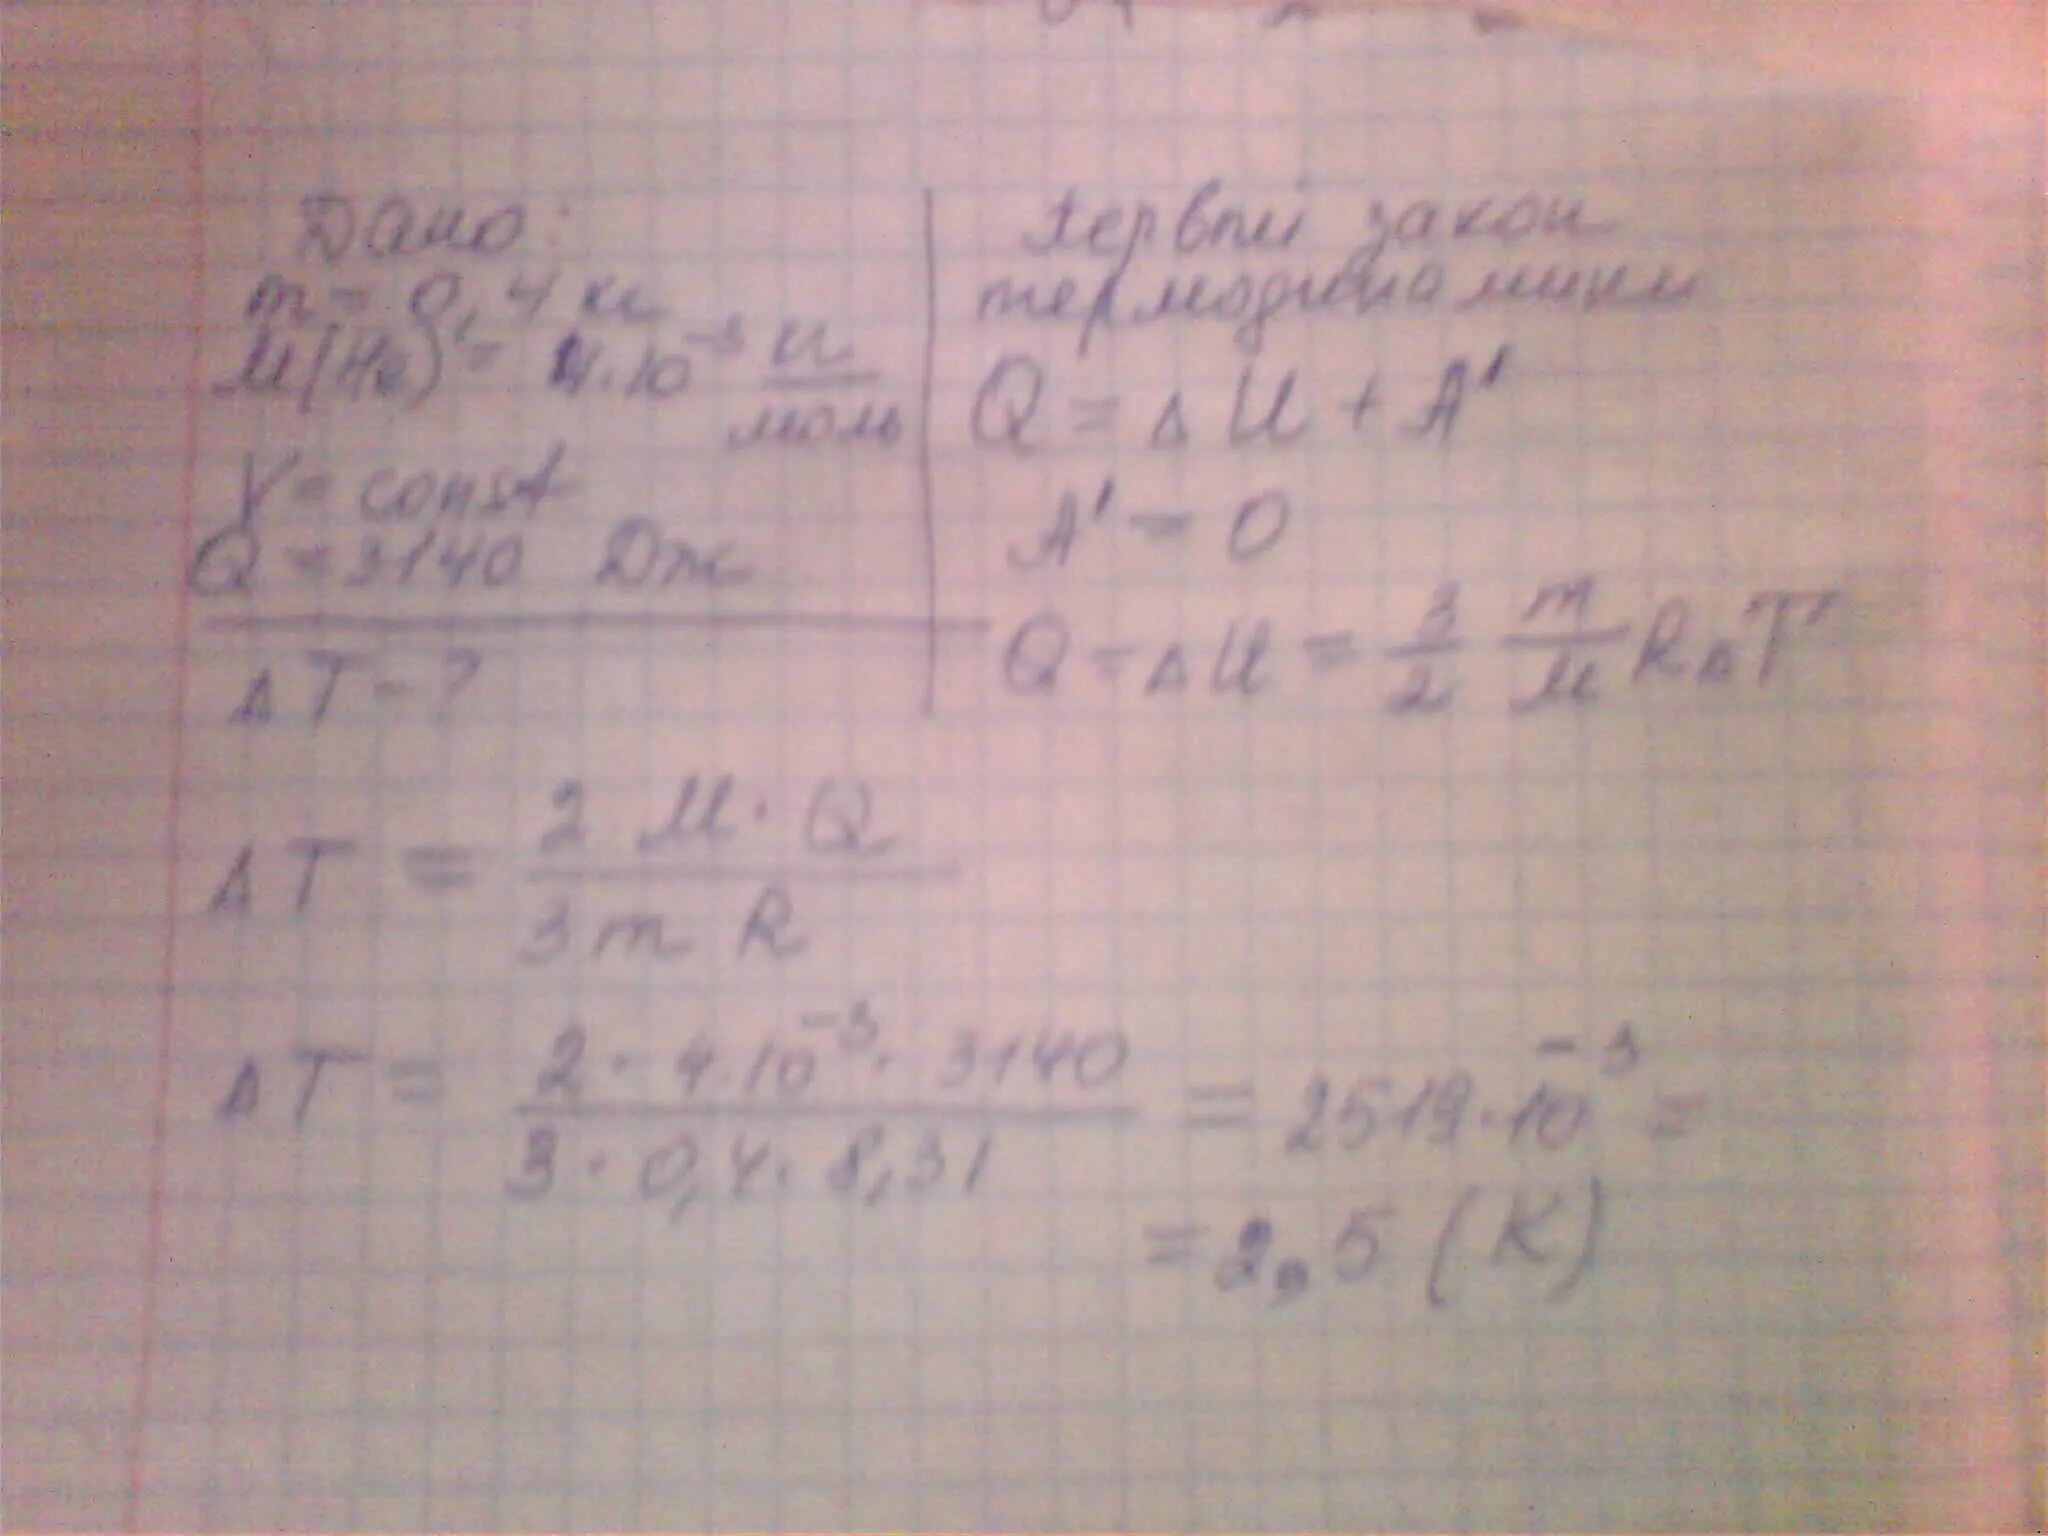 Дано:
m = 0,4 кг
M(He) = 4·10⁻³ кг/моль
V = const
Q = 3140 Дж
ΔT - ?
Первый закон
термодинамики
Q = ΔU + A'
A' = 0
Q = ΔU = 3/2 m/M RΔT
ΔT = 2 M · Q / 3 m R
ΔT = 2 · 4·10⁻³ · 3140 / 3 · 0,4 · 8,31 = 2519·10⁻³ =
= 2,5 (К)